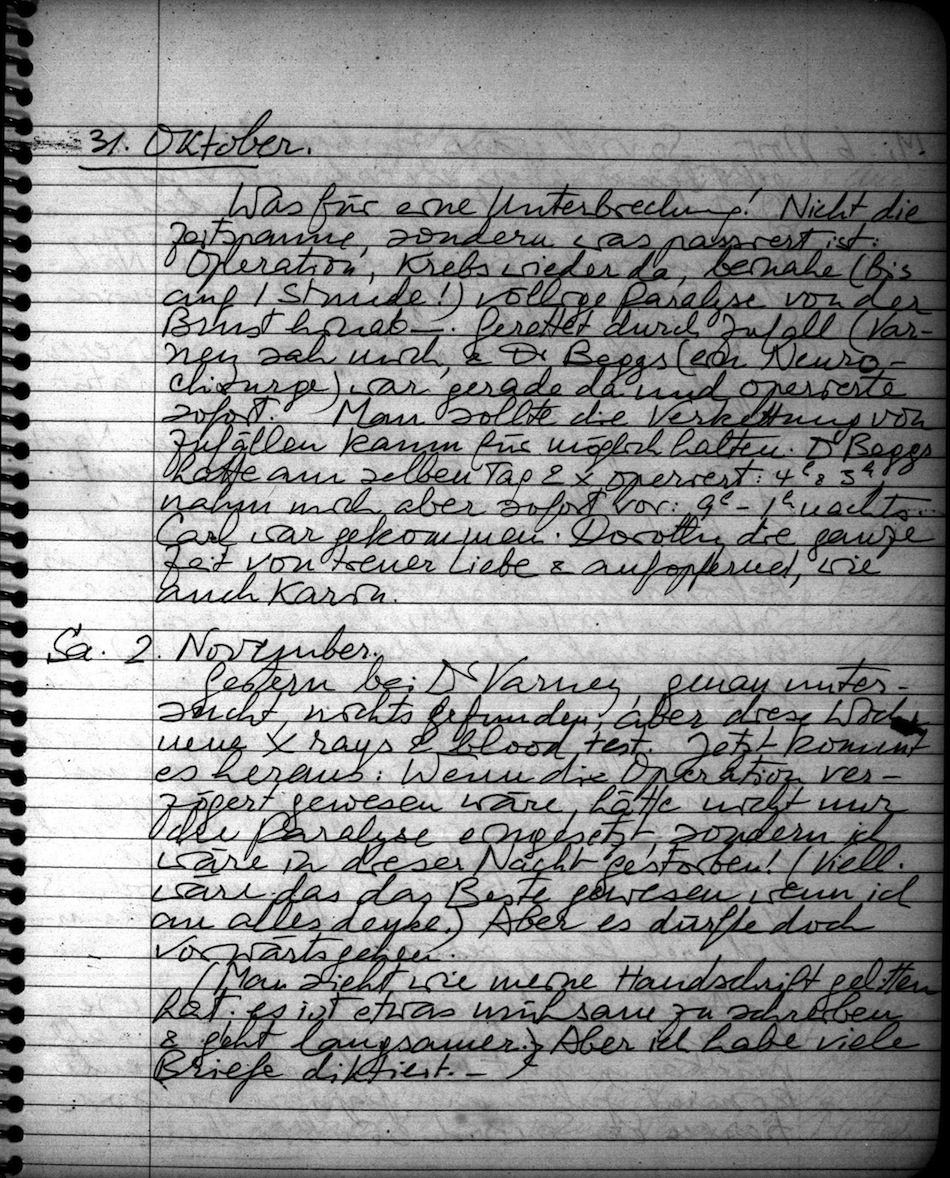 31. Oktober.
Was für eine Unterbrechung! Nicht die
Zeitspanne, sondern was passiert ist:
Operation, Krebs wieder da, beinahe (bis
auf 1 Stunde!) völlige Paralyse von der
Brust hinab—. Gerettet durch Zufall (Var-
ney sah mich, & Dr Beggs (ein Neuro-
chirurge) war gerade da und operierte
sofort. Man sollte die Verkettung von
Zufällen kaum für möglich halten. Dr Beggs
hatte am selben Tag 2 x operiert: 4h & 3h,
nahm mich aber sofort vor: 9h - 1h nachts..
Carl war gekommen. Dorothy die ganze
Zeit von treuer Liebe & aufopfernd, wie
auch Karin.
Sa. 2. November.
Gestern bei Dr Varney, genau unter-
sucht, nichts gefunden, aber diese Woche
neue X rays & blood test. Jetzt kommt
es heraus: Wenn die Operation ver-
zögert gewesen wäre, hätte nicht nur
die Paralyse eingesetzt, sondern ich
wäre in dieser Nacht gestorben! (Viell.
wäre das das Beste gewesen wenn ich
an alles denke.) Aber es dürfte doch
vorwärtsgehen.
(Man sieht wie meine Handschrift gelitten
hat. es ist etwas mühsam zu schreiben
& geht langsamer.) Aber ich habe viele
Briefe diktiert.—